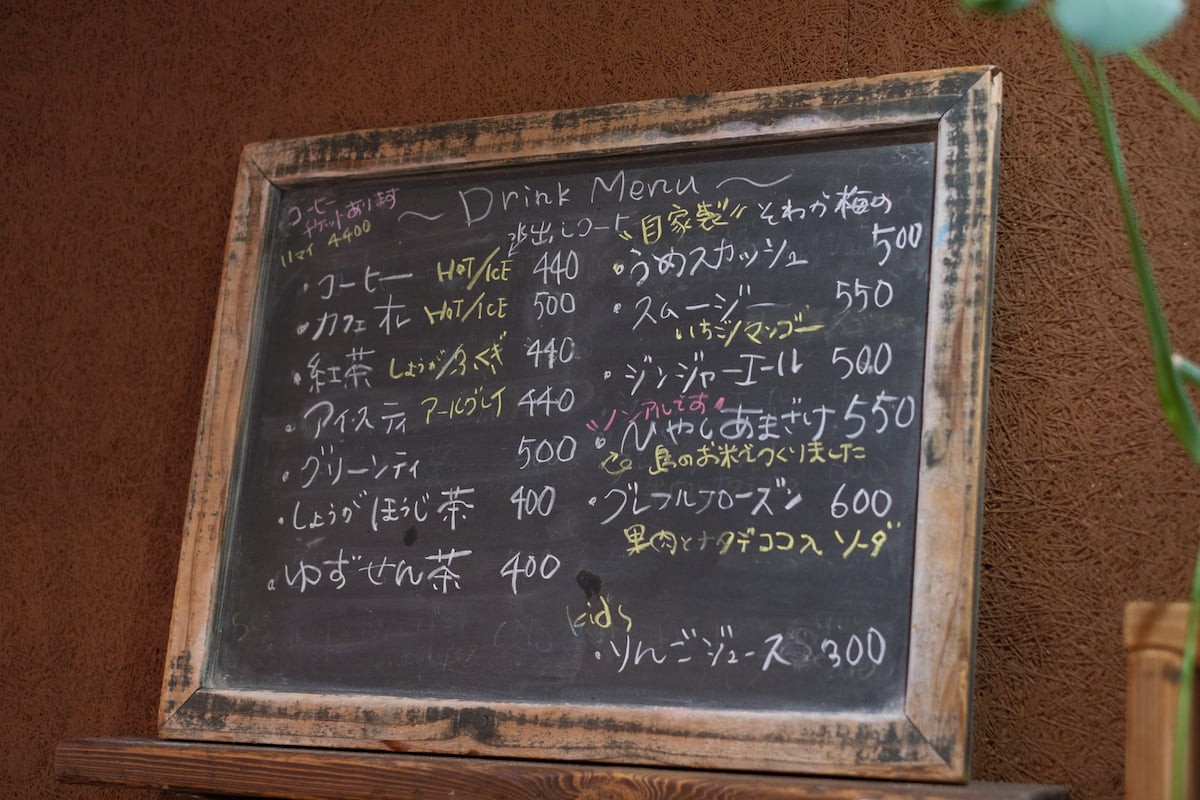 ~ Drink Menu ~
コーヒー
チケットあります
11マイ 4400
水出しコーヒー
・コーヒー HOT/ICE 440
・カフェオレ HOT/ICE 500
・紅茶 しょうが/ 440
・アイスティ アールグレイ 440
・グリーンティ 500
・しょうがほうじ茶 400
・ゆずせん茶 400
"自家製" 梅の
・うめスカッシュ 500
・スムージー 550
いちご/マンゴー
・ジンジャーエール 500
"ノンアルです"
・ひやしあまざけ 550
島のお米でつくりました
・グレフルフローズン 600
果肉とナタデココ入 ソーダ
kids
・りんごジュース 300